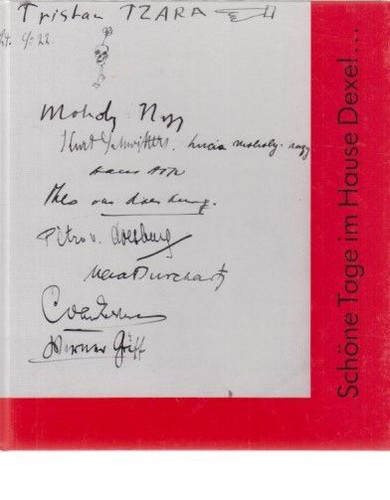 Tristan TZARA
Moholy Nagy
Kurt Schwitters. Lucia Moholy-Nagy
Hans Arp
Theo van Doesburg.
Petro v. Doesburg
Max Burchartz
C van Eesteren
Werner Gräff
Schöne Tage im Hause Dexel...